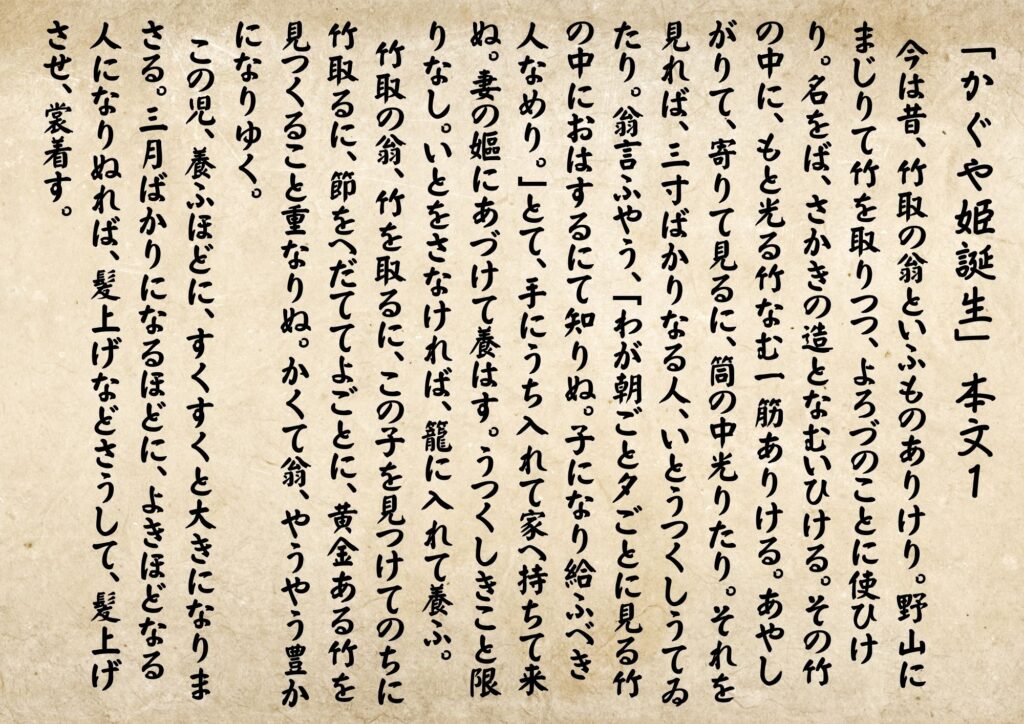 「かぐや姫誕生」 本文1
今は昔、竹取の翁といふものありけり。野山に
まじりて竹を取りつつ、よろづのことに使ひけ
り。名をば、さかきの造となむいひける。その竹
の中に、もと光る竹なむ一筋ありける。あやし
がりて、寄りて見るに、筒の中光りたり。それを
見れば、三寸ばかりなる人、いとうつくしうてゐ
たり。翁言ふやう、「わが朝ごと夕ごとに見る竹
の中におはするにて知りぬ。子になり給ふべき
人なめり。」とて、手にうち入れて家へ持ちて来
ぬ。妻の嫗にあづけて養はす。うつくしきこと限
りなし。いとをさなければ、籠に入れて養ふ。
竹取の翁、竹を取るに、この子を見つけてのちに
竹取るに、節をへだててよごとに、黄金ある竹を
見つくること重なりぬ。かくて翁、やうやう豊か
になりゆく。
この児、養ふほどに、すくすくと大きになりま
さる。三月ばかりになるほどに、よきほどなる
人になりぬれば、髪上げなどさうして、髪上げ
させ、裳着す。